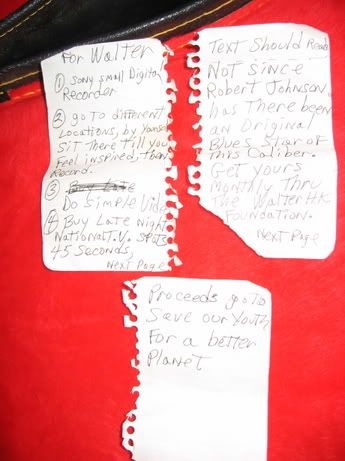 For Walter
① Sony small Digital
Recorder
② go To different
Locations, by Yourself
Sit There Till you
Feel inspired, Then
Record.
③
Do Simple Video
④ Buy Late Night
National T.V. Spots
45 Seconds,
Next Page
Text Should Read
Not Since
Robert Johnson
has There been
an Original
Blues Star of
This Caliber.
Get yours
Monthly Thru
The Walter H.K.
Foundation.
Next Page
Proceeds go To
Save our Youth
For a better
Planet